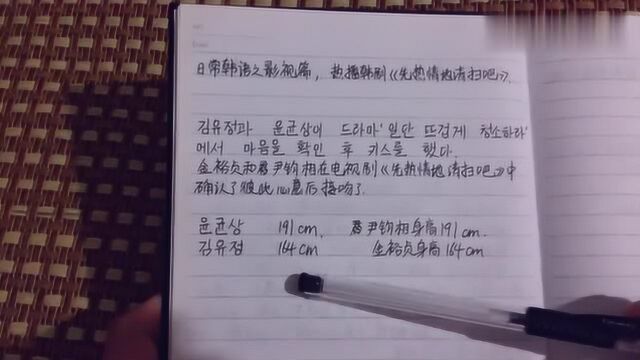 日常韩语之影视篇，热播韩剧《先热情地清扫吧》.
김유정과 윤균상이 드라마'일단 뜨겁게 청소하라'
에서 마음을 확인 후 키스를 했다.
金裕贞和尹钧相在电视剧《先热情地清扫吧》中
确认了彼此心意后接吻了.
윤균상 191cm, 尹钧相身高191cm.
김유정 164cm 金裕贞身高164cm